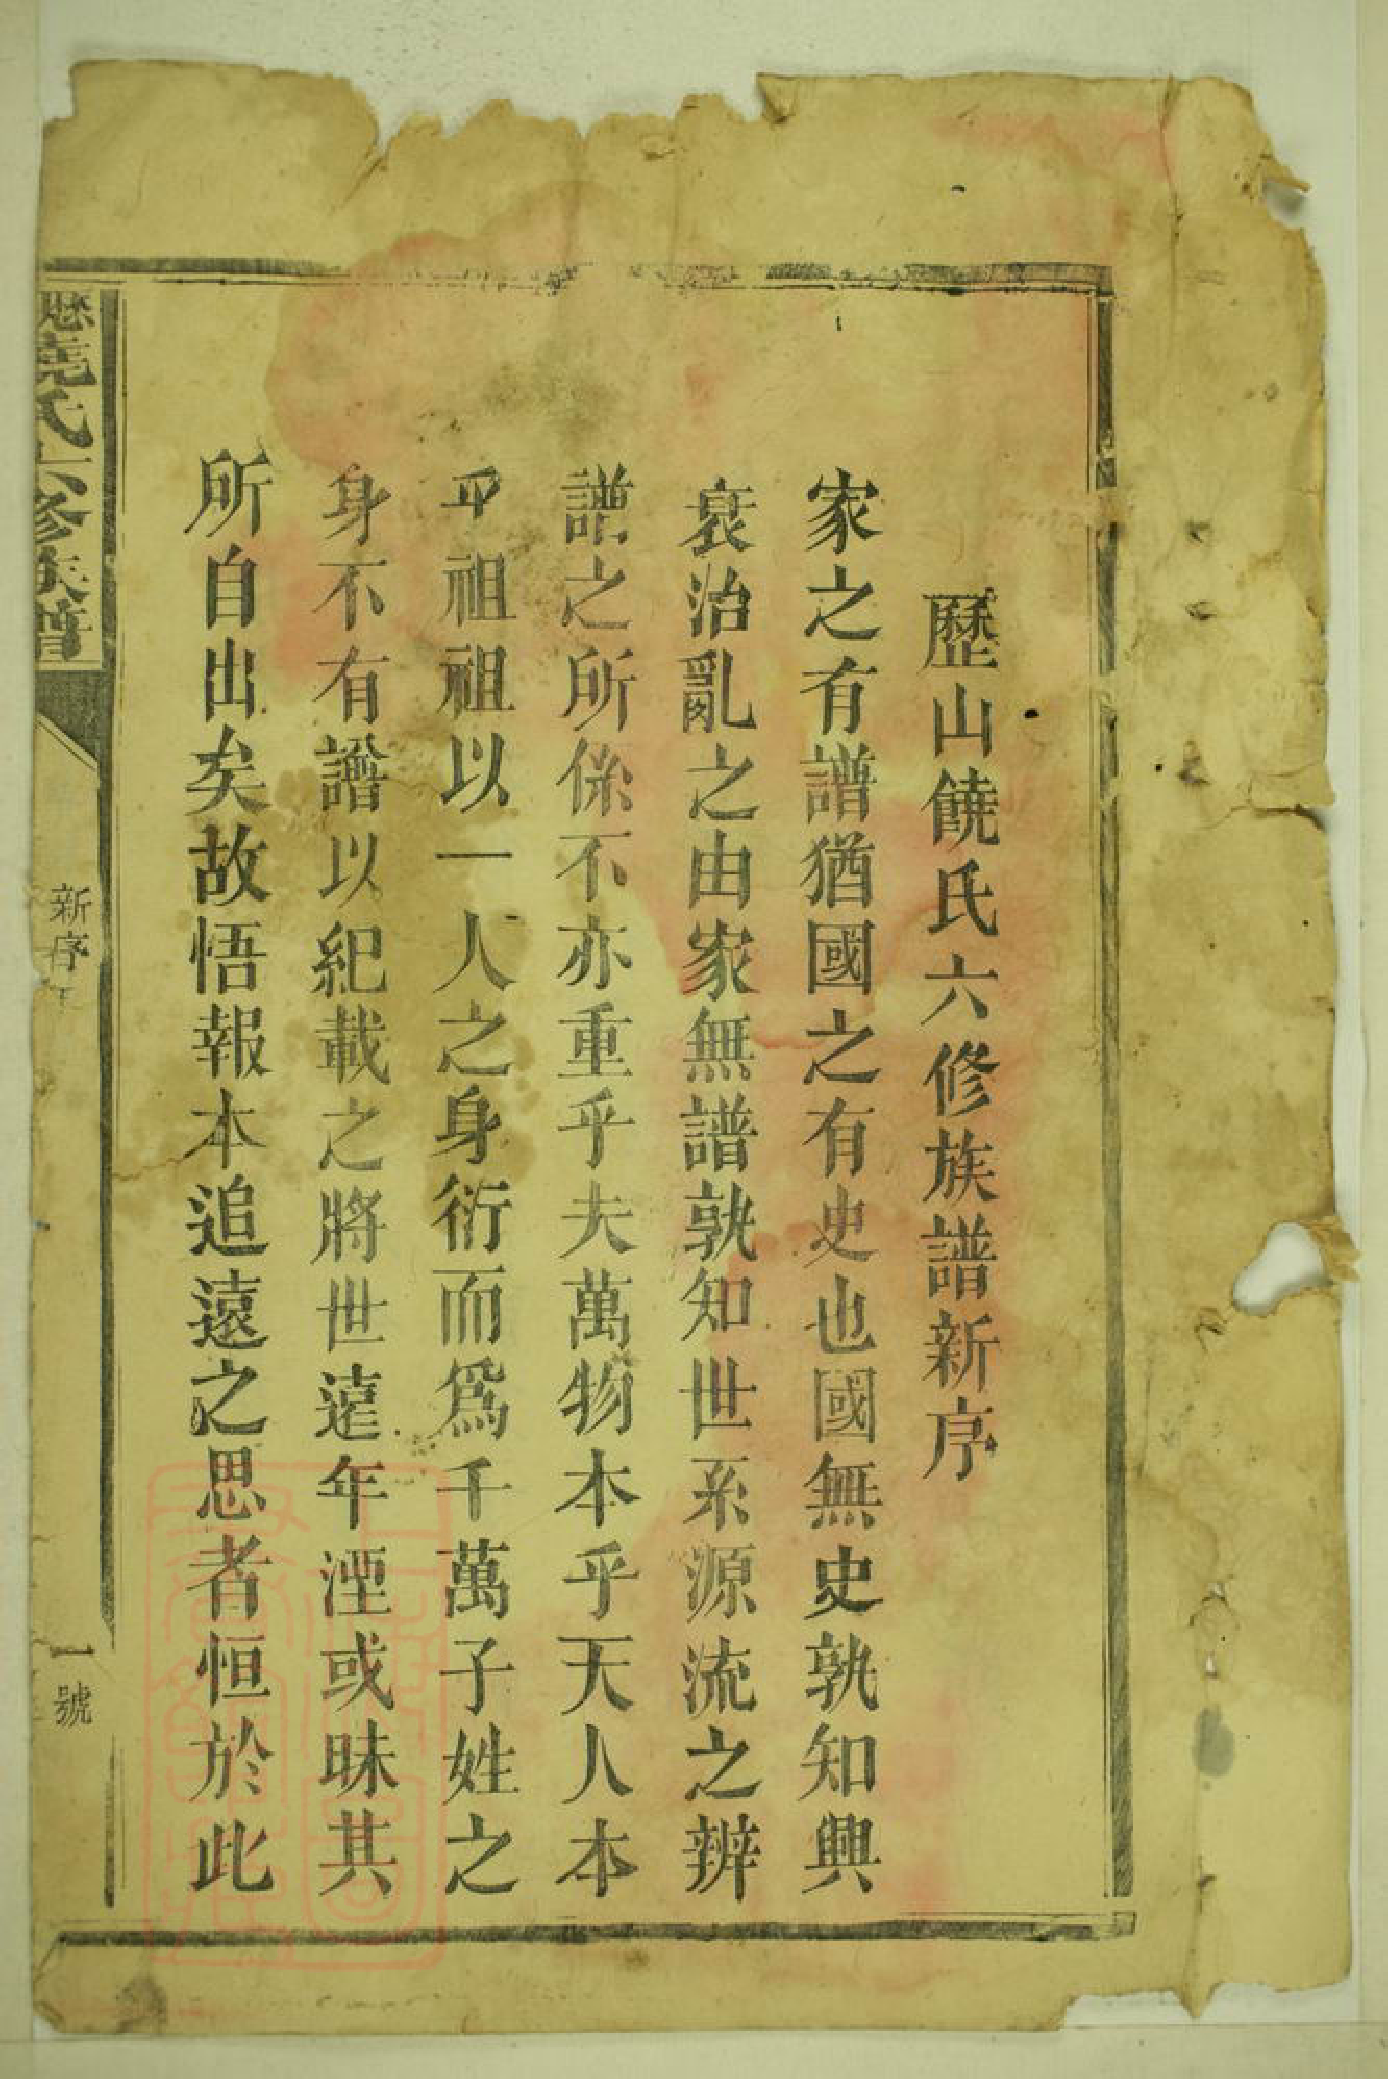 歷山饒氏六修族譜新序
家之有譜猶國之有史也國無史孰知興
衰治亂之由家無譜孰知世系源流之辨
譜之所係不亦重乎夫萬物本乎天人本
乎祖祖以一人之身衍而爲千萬子姓之
身不有譜以紀載之將世遠年湮或昧其
所自出矣故悟報本追遠之思者恒於此
饒氏六修族譜
新序
一號